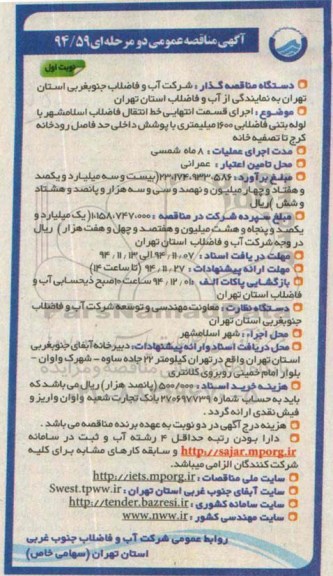 آگهی مناقصه عمومی دو مرحله‌ای ۹۴/۵۹
نوبت اول
دستگاه مناقصه گذار : شرکت آب و فاضلاب جنوبغربی استان
تهران به نمایندگی از آب و فاضلاب استان تهران
موضوع : اجرای قسمت انتهایی خط انتقال فاضلاب اسلامشهر با
لوله بتنی فاضلابی ۱۶۰۰ میلیمتری با پوشش داخلی حد فاصل رودخانه
کرج تا تصفیه خانه
مدت اجرای عملیات : ۸ ماه شمسی
محل تامین اعتبار : عمرانی
مبلغ برآورد : ۲۳/۱۷۴/۹۳۳/۵۸۶ (بیست و سه میلیارد و یکصد
و هفتاد و چهار میلیون و نهصد و سی و سه هزار و پانصد و هشتاد
و شش) ریال
مبلغ سپرده شرکت در مناقصه : ۱/۱۵۸/۷۴۷/۰۰۰ (یک میلیارد و
یکصد و پنجاه و هشت میلیون و هفتصد و چهل و هفت هزار) ریال
در وجه شرکت آب و فاضلاب استان تهران
مهلت دریافت اسناد : ۹۴/۱۱/۰۷ الی ۹۴/۱۱/۱۳
مهلت ارائه پیشنهادات : ۹۴/۱۱/۲۷ (تا ساعت ۱۴)
بازگشایی پاکات الف ۹۴/۱۲/۰۱ ساعت ۱۰ صبح ذیحسابی آب و
فاضلاب استان تهران
دستگاه نظارت : معاونت مهندسی و توسعه شرکت آب و فاضلاب
جنوبغربی استان تهران
محل اجرا : شهر اسلامشهر
محل دریافت اسناد و ارائه پیشنهادات : دبیرخانه آبفای جنوبغربی
استان تهران واقع در تهران کیلومتر ۲۲ جاده ساوه - شهرک واوان -
بلوار امام خمینی روبروی کلانتری
هزینه خرید اسناد : ۵۰۰/۰۰۰ (پانصد هزار) ریال می باشد که
باید به حساب شماره ۲۷۰۶۹۷۲۳۹ بانک تجارت شعبه واوان واریز و
فیش نقدی ارائه گردد.
هزینه درج آگهی در دو نوبت به عهده برنده مناقصه می باشد.
دارا بودن رتبه حداقل ۴ رشته آب و ثبت در سامانه
http://sajar.mporg.ir و سابقه کارهای مشابه برای کلیه
شرکت کنندگان الزامی میباشد.
سایت ملی مناقصات : http://iets.mporg.ir
سایت آبفای جنوب غربی استان تهران : Swest.tpww.ir
سایت سامانه کشوری : http://tender.bazresi.ir
سایت مهندسی کشور : www.nww.ir
روابط عمومی شرکت آب و فاضلاب جنوب غربی
استان تهران (سهامی خاص)